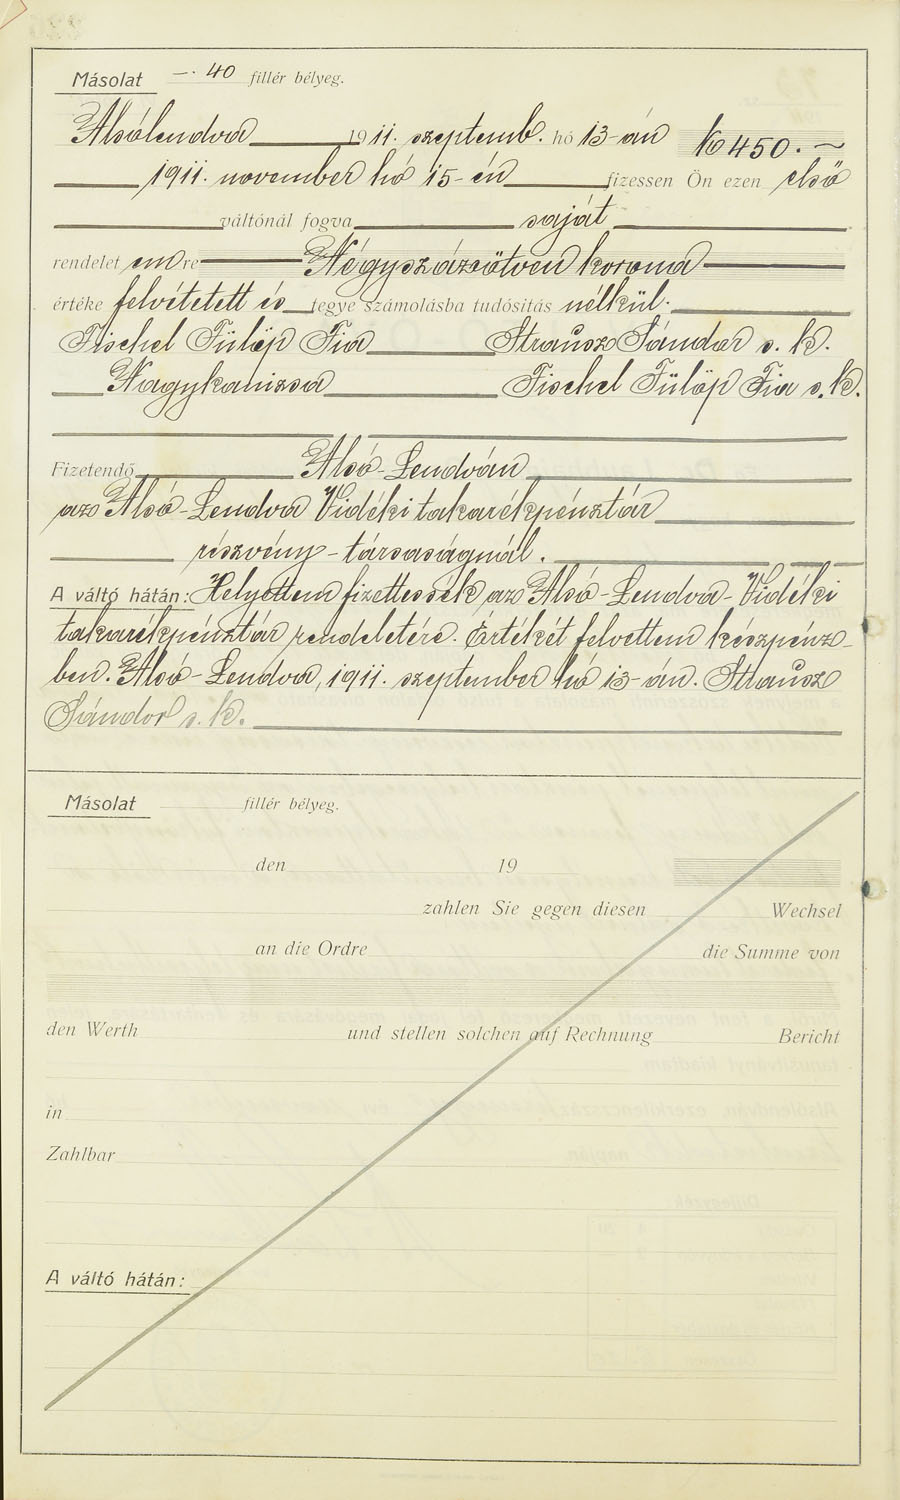 Másolat —.40 fillér bélyeg.
Alsólendva 1911. szeptemb. hó 13-án K 450.—
1911. november hó 15-én fizessen Ön ezen első
váltónál fogva saját
rendelet emre Négyszázötven korona
értéke felvétetett és tegye számolásba tudósítás nélkül.
Fischel Fülöp Fia Strausz Sándor s. k.
Nagykanizsa Fischel Fülöp Fia s. k.
Fizetendő Alsó-Lendván
az Alsó-Lendva Vidéki takarékpénztár
részvény-társaságnál.
A váltó hátán: Helyettem fizettessék az Alsó-Lendva-Vidéki
takarékpénztár rendeletére. Értékét felvettem készpénz-
ben. Alsó-Lendva, 1911. szeptember hó 13-án. Strausz
Sándor s. k.
Másolat fillér bélyeg.
den 19
zahlen Sie gegen diesen Wechsel
an die Ordre die Summe von
den Werth und stellen solchen auf Rechnung Bericht
in
Zahlbar
A váltó hátán: